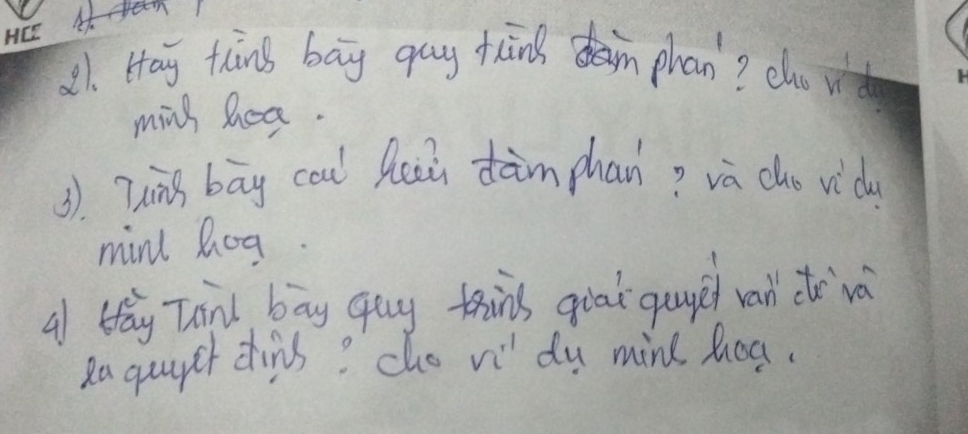 HCE
2). Hãy trình bày quy trình đàm phán? cho ví dụ
minh hoạ.
3). Trình bày các kiểu đàm phán? và cho ví dụ
minh hoạ.
4) Hãy Trình bày quy trình giải quyết vấn đề và
ra quyết định? cho ví dụ minh hoạ.